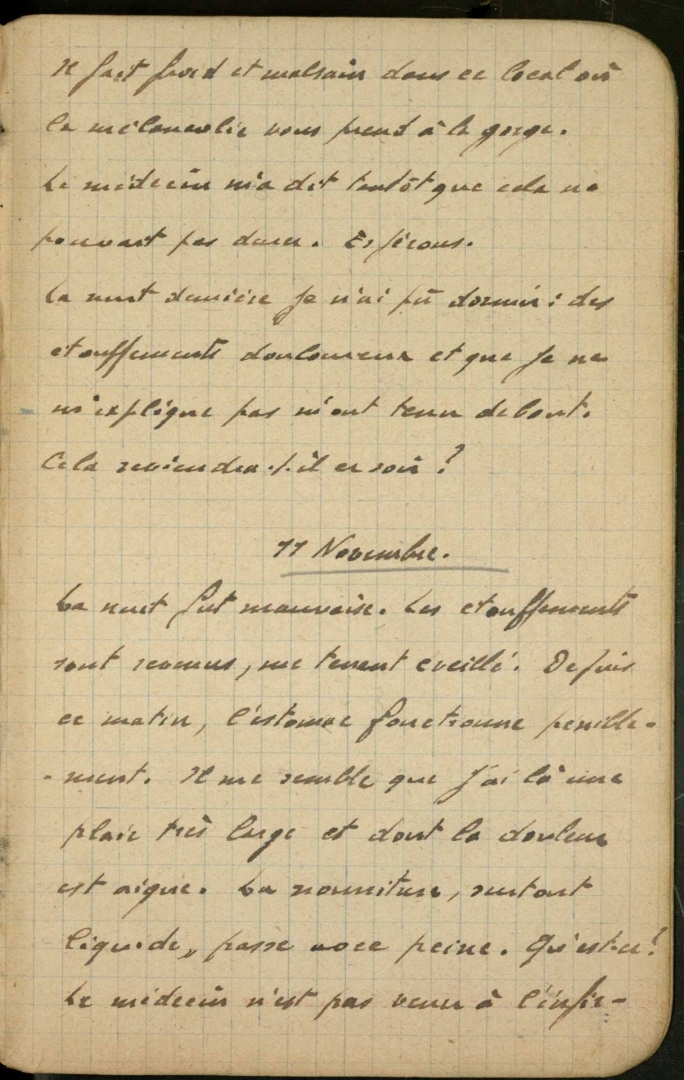 Il fait froid et malsain dans ce local où
la mélancolie vous prend à la gorge.
Le médecin m'a dit tantôt que cela ne
pouvait pas durer. Espérons.
La nuit dernière je n'ai pû dormir : des
étouffements douloureux et que je ne
m'explique pas m'ont tenu debout.
Cela reviendra-t-il ce soir ?
11 Novembre.
La nuit fut mauvaise. Les étouffements
sont revenus, me tenant éveillé. Depuis
ce matin, l'estomac fonctionne pénible-
-ment. Il me semble que j'ai là une
plaie très large et dont la douleur
est aigue. La nourriture, surtout
liquide, passe avec peine. Qu'est-ce ?
Le médecin n'est pas venu à l'infir-